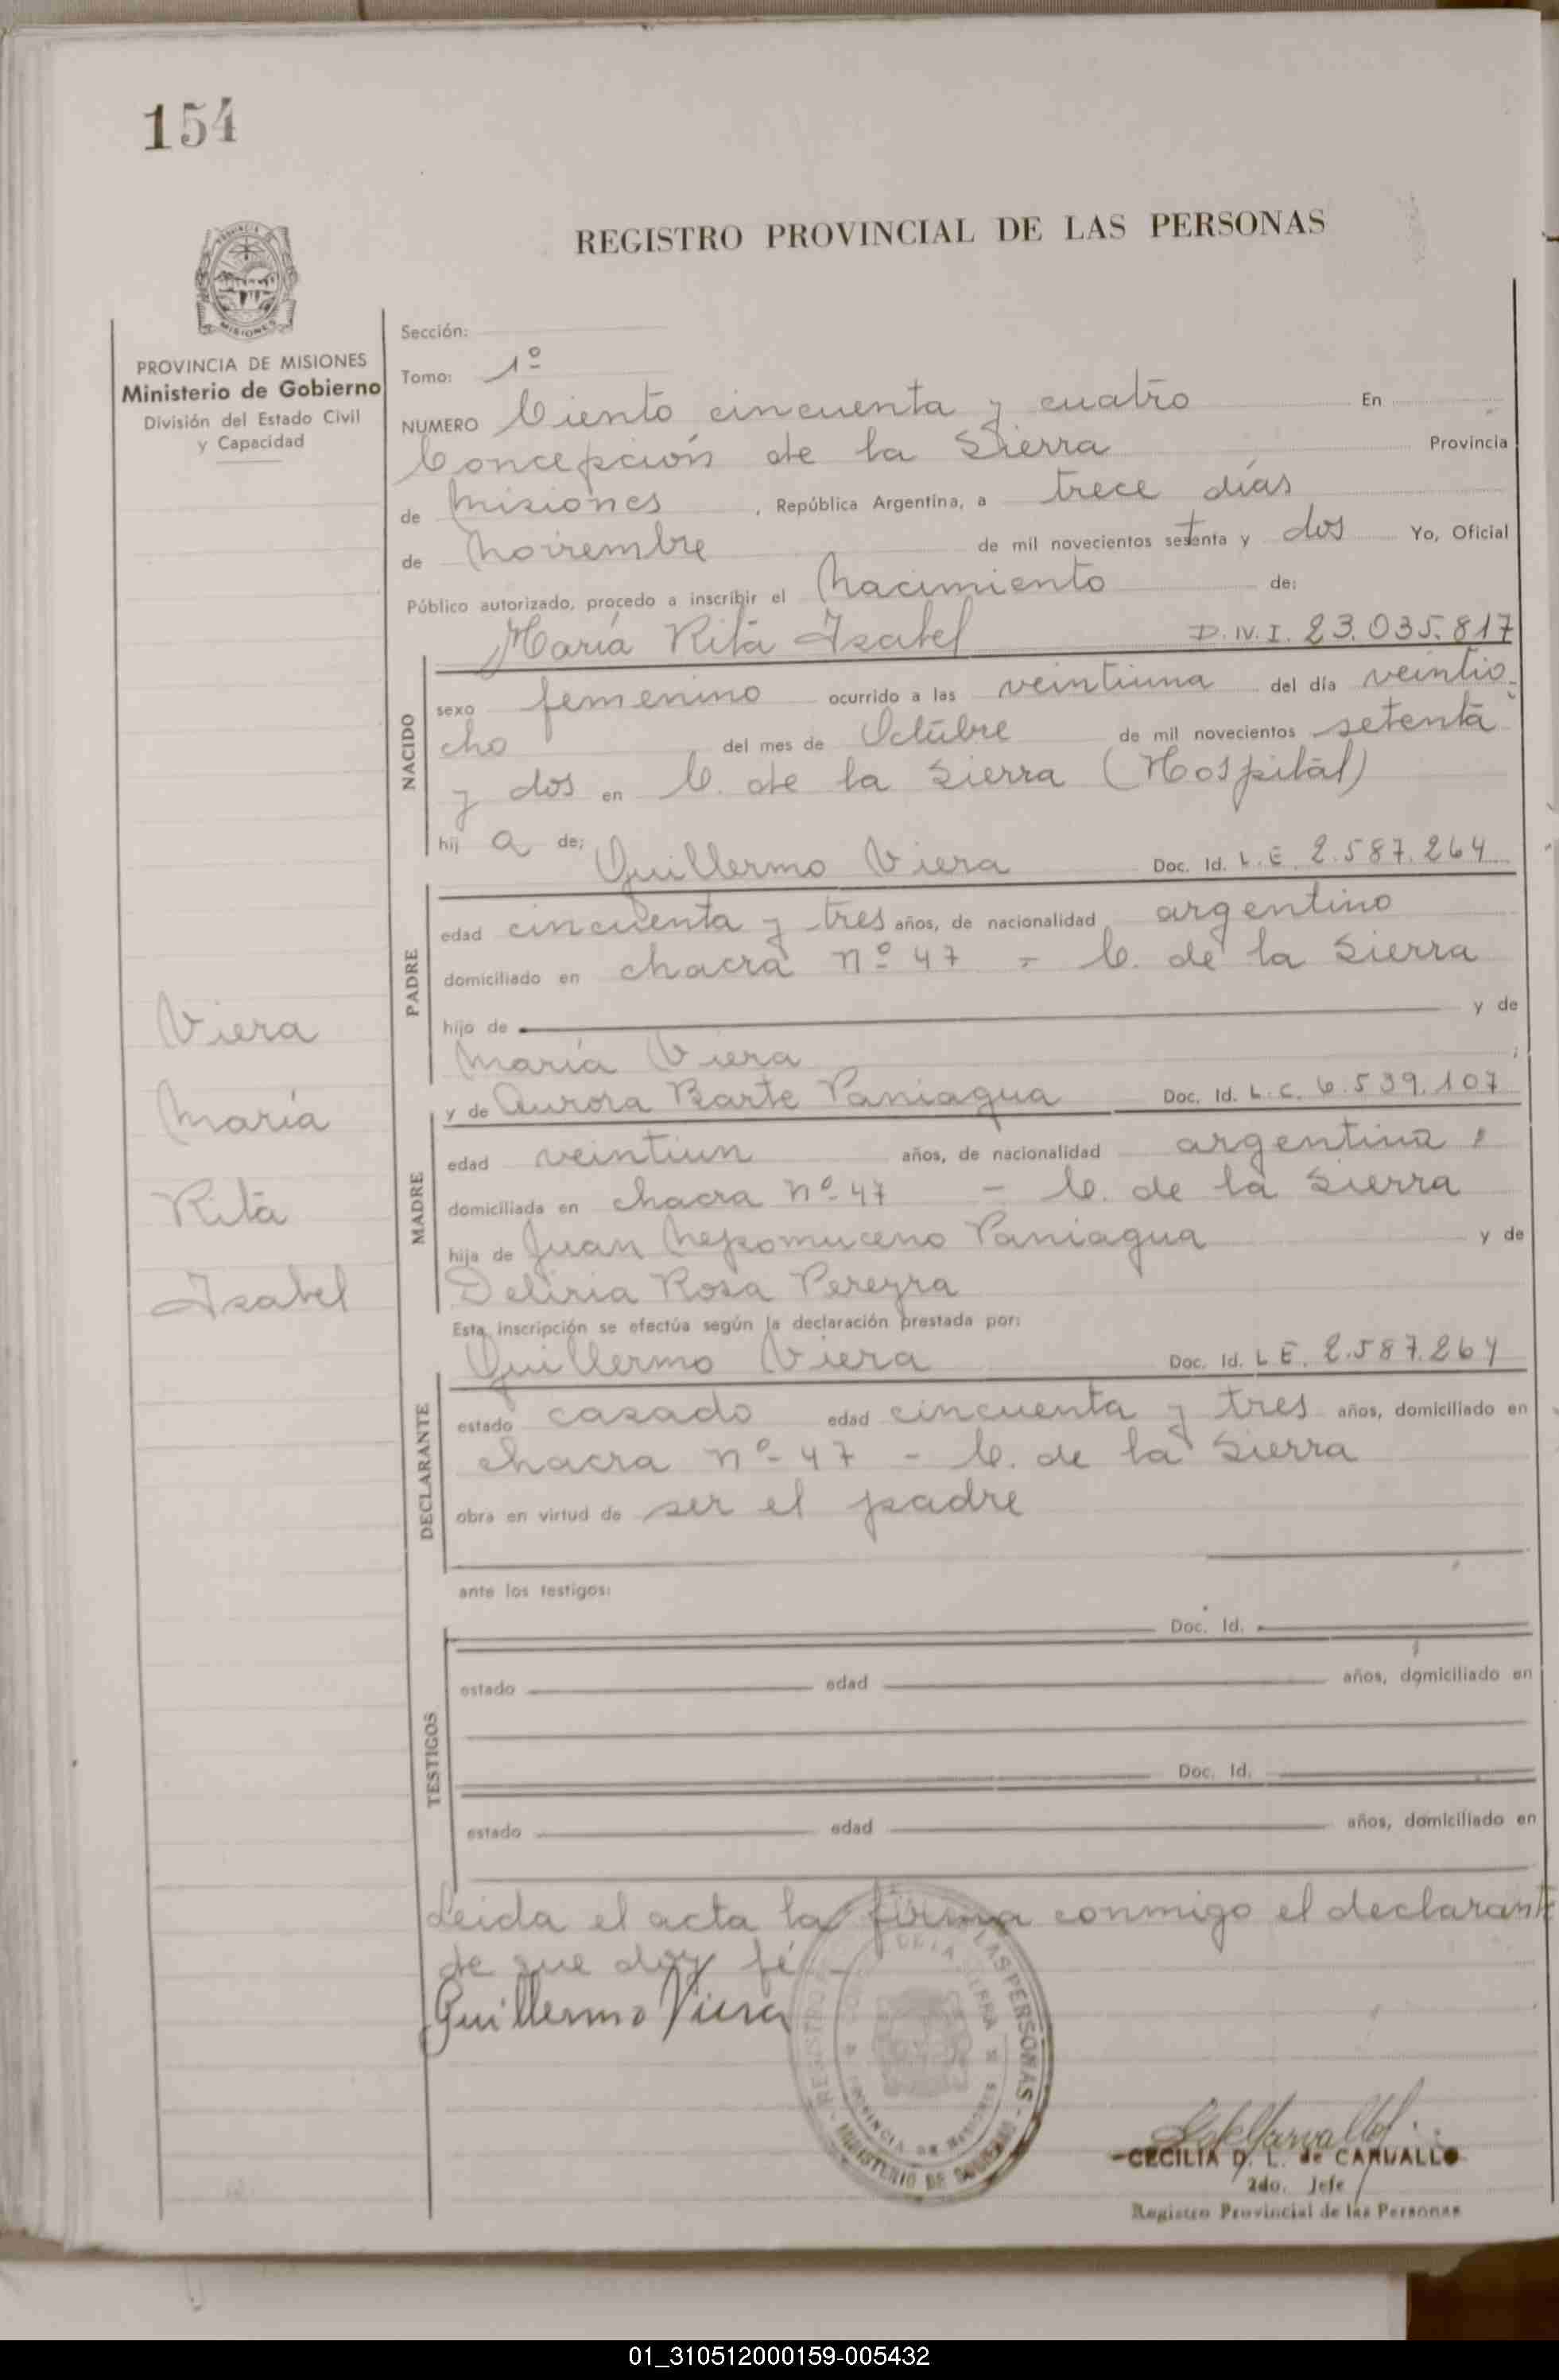 154
REGISTRO PROVINCIAL DE LAS PERSONAS
PROVINCIA DE MISIONES
Ministerio de Gobierno
División del Estado Civil
y Capacidad
Sección:
Tomo: 1º
NUMERO Ciento cincuenta y cuatro En
Concepción de la Sierra Provincia
de Misiones, República Argentina, a trece días
de Noviembre de mil novecientos setenta y dos Yo, Oficial
Público autorizado, procedo a inscribir el Nacimiento de:
María Rita Isabel D.N.I. 23.035.817
NACIDO
sexo femenino ocurrido a las veintiuna del día veintio-
cho del mes de Octubre de mil novecientos setenta
y dos en C. de la Sierra (Hospital)
hij a de: Guillermo Viera Doc. Id. L.E. 2.587.264
PADRE
edad cincuenta y tres años, de nacionalidad argentino
domiciliado en chacra nº 47 = C. de la Sierra
hijo de y de
María Viera ;
y de Aurora Barte Paniagua Doc. Id. L.C. 6.539.107
MADRE
edad veintiun años, de nacionalidad argentina
domiciliada en chacra nº 47 - C. de la Sierra
hija de Juan Nepomuceno Paniagua y de
Deliria Rosa Pereyra
Esta inscripción se efectúa según la declaración prestada por:
Guillermo Viera Doc. Id. L.E. 2.587.264
DECLARANTE
estado casado edad cincuenta y tres años, domiciliado en
chacra nº 47 - C. de la Sierra
obra en virtud de ser el padre
ante los testigos:
Doc. Id.
TESTIGOS
estado edad años, domiciliado en
Doc. Id.
estado edad años, domiciliado en
Leida el acta la firma conmigo el declarante
de que doy fé -
Guillermo Viera
Viera
María
Rita
Isabel
REGISTRO LAS PERSONAS - MINISTERIO DE GOBIERNO
DE LA SIERRA
PROVINCIA DE MISIONES
CECILIA D. L. de CARVALLO
2do. Jefe
Registro Provincial de las Personas
01_310512000159-005432